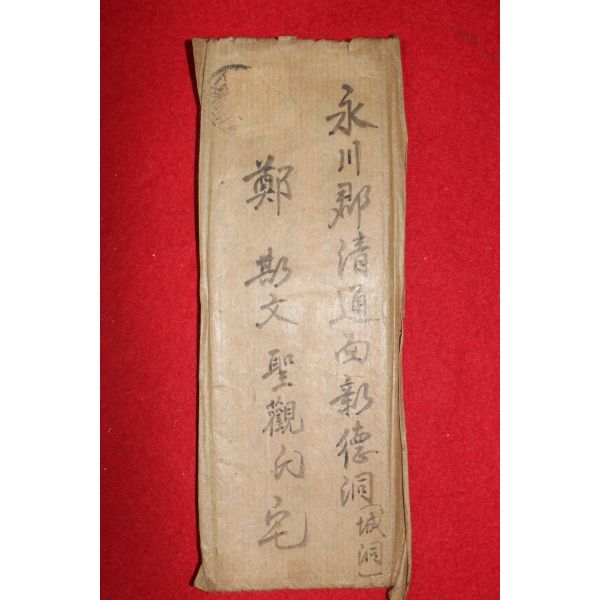 永川郡清通面新德洞(城洞)
鄭斯文聖觀氏宅